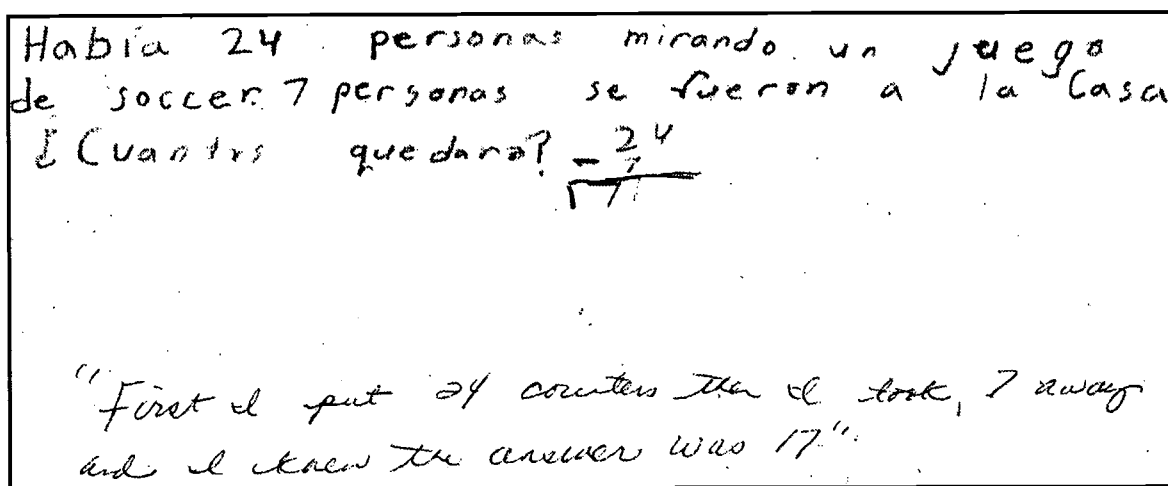 Había 24 personas mirando un juego
de soccer. 7 personas se fueron a la Casa
¿Cuantos quedaron?
24
- 7
17
"First I put 24 counters then I took, 7 away
and I knew the answer was 17".